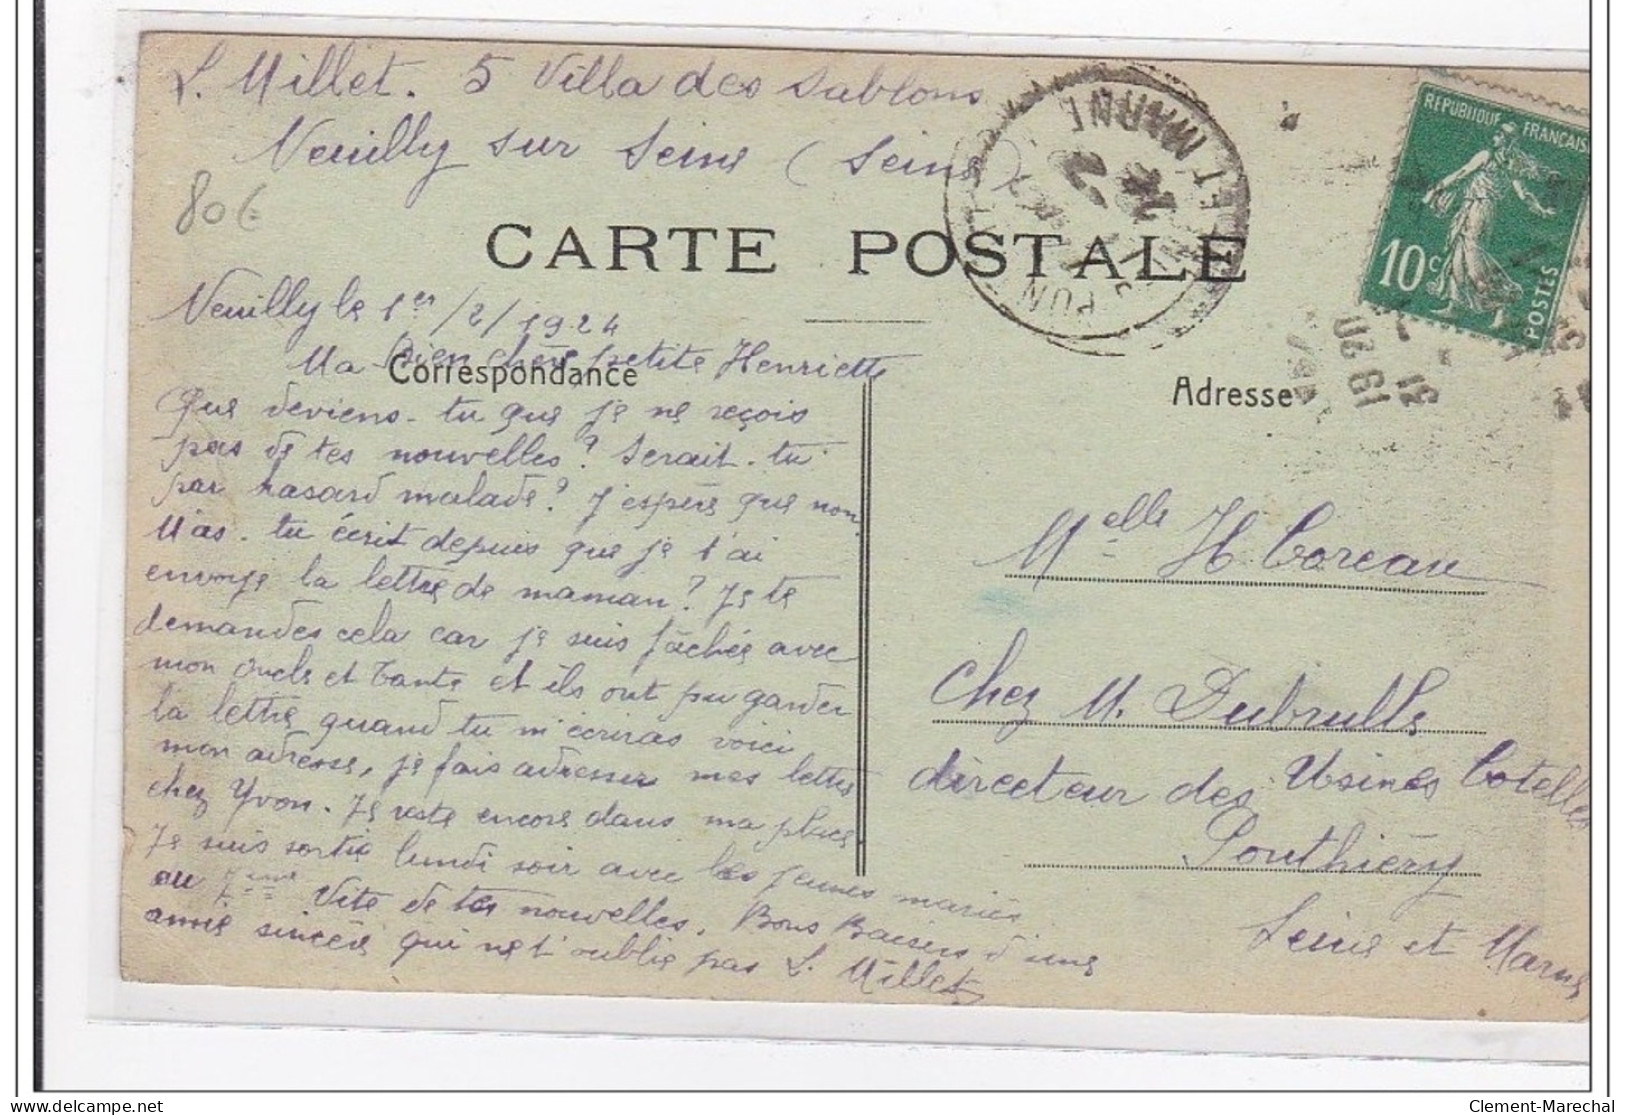 L. Millet. 5 Villa des Sablons
Neuilly sur Seine (Seine)
80€
CARTE POSTALE
REPUBLIQUE FRANÇAISE
10c
POSTES
MARNE
Neuilly le 1er/2/1924
Ma bien chère petite Henriette
Correspondance
Que deviens-tu que je ne reçois
pas de tes nouvelles? Serait-tu
par hasard malade? J'espère que non
M'as-tu écrit depuis que je t'ai
envoyé la lettre de maman? Je te
demandes cela car je suis fâchée avec
mon oncle et tante et ils ont pu garder
la lettre quand tu m'écriras voici
mon adresse, je fais adresser mes lettres
chez Yvon. Je reste encore dans ma place.
Je suis sortie lundi soir avec les jeunes mariés
au 7eme Vite de tes nouvelles. Bons Baisers d'une
amie sincère qui ne t'oublie pas L. Millet
Adresse
Melle H Coreau
chez M. Dubrulle
directeur des Usines Cotelles
Ponthiery
Seine et Marne
Clement-Marechal